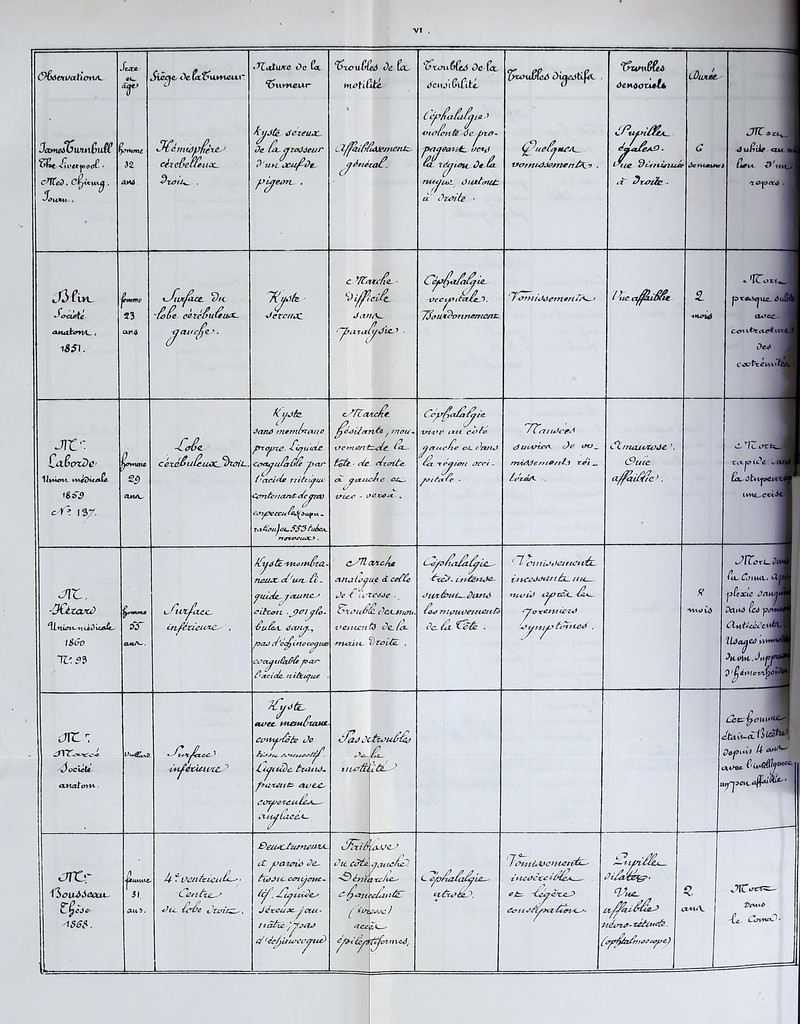 VI
Observations
Sexe
et
âge
Siège de la Tumeur
Nature de la
Tumeur
Troubles de la
motilité
Troubles de la
sensibilité
Troubles Digestifs.
Troubles
sensoriels
Durée
James Turnbull
The Liverpool
Med. Chirurg.
Journ.
homme
32
ans
Hémisphère
cérébelleux
Droit.
Kyste séreux
de la grosseur
d'un œuf de
pigeon.
Affaiblissement
général.
Céphalalgie
violente se pro-
pageant vers
la région de la
nuque surtout
à droite.
Quelques
vomissements.
Pupilles
égales.
Vue diminuée
à Droite.
6
semaines
Mort
subite au
lieu d'un
repas.
Blin
Société
anatom.
1851.
femme
23
ans
Surface du
lobe cérébuleux
gauche.
Kyste
séreux
Marche
difficile
sans
paralysie.
Céphalalgie
occipitale.
Bourdonnement
Vomissements
Vue affaiblie
2
mois
Mort
presque subite
avec
contracture
des
extrémités.
Mr.
Laborde
Union médicale
1859
No 137.
homme
29
ans
Lobe
cérébuleux droit.
Kyste
sans membrane
propre. Liquide
coagulable par
l'acide nitrique
contenant de gros
corpuscules (supu-
ration) et 553 tubes
nerveux.
Marche
hésitante, mou-
vement de la
tête de droite
à gauche et
vice-versâ.
Céphalalgie
vive au côté
gauche et dans
la région occi-
pitale.
Nausées
suivies de vo-
missements réi-
térés.
Amaurose.
Ouie
affaiblie.
Mort
rapide dans
la stupeur
une crise
M.
Hérard
Union médicale
1860
No. 93
homme
55
ans.
Surface
inférieure.
Kyste membra-
neux d'un li-
quide jaune
citron. 901 glo-
bules sang.
pas d'échinocoques
coagulable par
l'acide nitrique
Marche
analogue à celle
de l'ivresse.
Trouble des mou-
vements de la
main droite.
Céphalalgie
très-intense
surtout dans
les mouvements
de la Tête.
Vomissements
incessants un
mois après les
premiers
symptômes.
8
mois
Mort dans
le Coma.
plexie sanguine
dans les
Antécédents.
Usages
du vin.
D'hémorrhoïdes
Mr.
Marcé
Société
anatom.
vieillard.
Surface
inférieure
Kyste
avec membrane
complète de
tissu connectif
Liquide trans-
parent avec
corpuscules
anglacés.
Pas de troubles
de la
motilité
Cet homme
était à Bicêtre
depuis 4 ans
avec l'intelligence
un peu affaiblie.
Mr.
Bousseau
Thèse
1868.
femme
31
ans.
4e ventricule.
Centre
du lobe droit.
Deux tumeurs
à parois de
tissu conjonc-
tif. Liquide
séreux jau-
nâtre; pas
d'échinocoque
Faiblesse
du côté gauche.
Démarche
chancelante
(ivresse)
accès
épileptiformes.
Céphalalgie
atroce.
Vomissements
incoërcibles
et légère
constipation.
Pupilles
dilatées.
Vue
affaiblie
névro-rétinite
(ophtalmoscope)
2
ans
Mort
dans
le Coma.